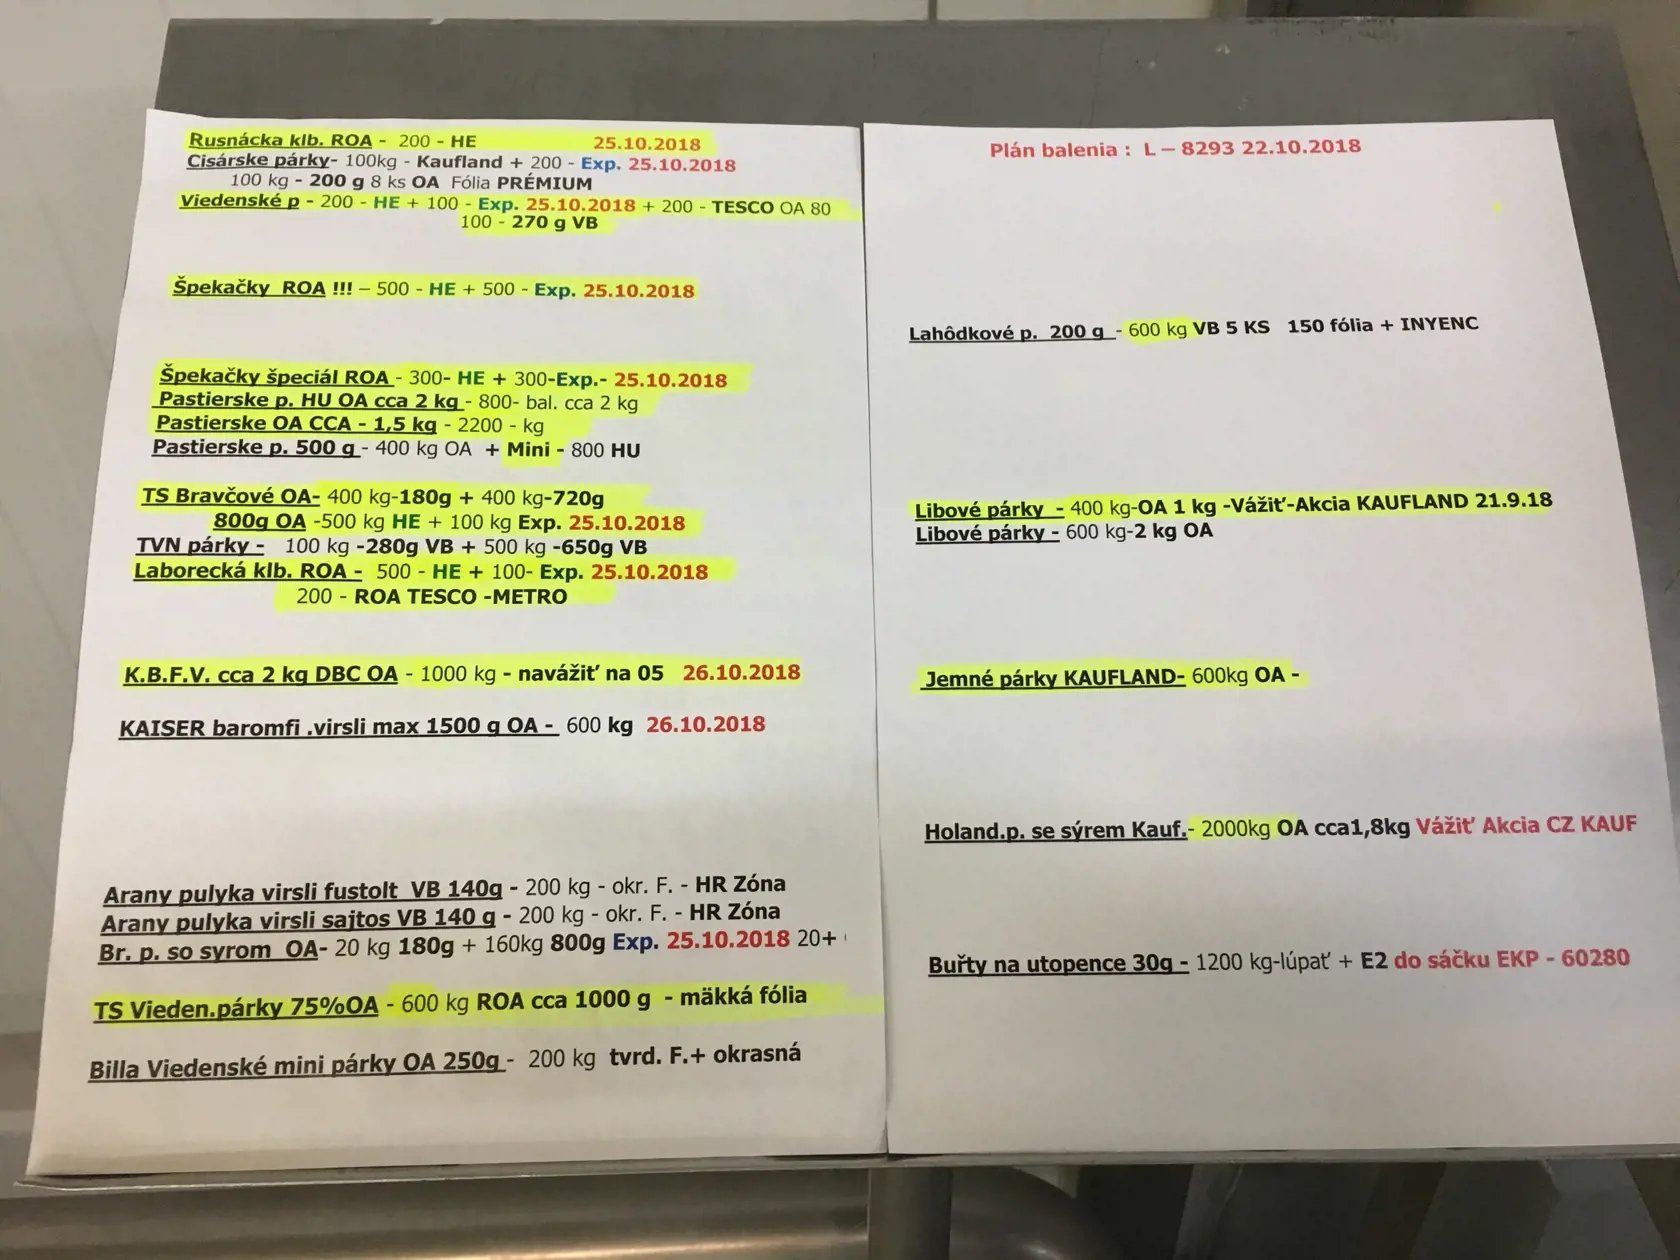 Rusnácka klb. ROA - 200 - HE 25.10.2018
Cisárske párky- 100kg - Kaufland + 200 - Exp. 25.10.2018
100 kg - 200 g 8 ks OA Fólia PRÉMIUM
Viedenské p - 200 - HE + 100 - Exp. 25.10.2018 + 200 - TESCO OA 80
100 - 270 g VB
Špekačky ROA !!! – 500 - HE + 500 - Exp. 25.10.2018
Špekačky špeciál ROA - 300- HE + 300-Exp.- 25.10.2018
Pastierske p. HU OA cca 2 kg - 800- bal. cca 2 kg
Pastierske OA CCA - 1,5 kg - 2200 - kg
Pastierske p. 500 g - 400 kg OA + Mini - 800 HU
TS Bravčové OA- 400 kg-180g + 400 kg-720g
800g OA -500 kg HE + 100 kg Exp. 25.10.2018
TVN párky - 100 kg -280g VB + 500 kg -650g VB
Laborecká klb. ROA - 500 - HE + 100- Exp. 25.10.2018
200 - ROA TESCO -METRO
K.B.F.V. cca 2 kg DBC OA - 1000 kg - navážiť na 05 26.10.2018
KAISER baromfi .virsli max 1500 g OA - 600 kg 26.10.2018
Arany pulyka virsli fustolt VB 140g - 200 kg - okr. F. - HR Zóna
Arany pulyka virsli sajtos VB 140 g - 200 kg - okr. F. - HR Zóna
Br. p. so syrom OA- 20 kg 180g + 160kg 800g Exp. 25.10.2018 20+
TS Vieden.párky 75%OA - 600 kg ROA cca 1000 g - mäkká fólia
Billa Viedenské mini párky OA 250g - 200 kg tvrd. F.+ okrasná
Plán balenia : L – 8293 22.10.2018
Lahôdkové p. 200 g - 600 kg VB 5 KS 150 fólia + INYENC
Libové párky - 400 kg-OA 1 kg -Vážiť-Akcia KAUFLAND 21.9.18
Libové párky - 600 kg-2 kg OA
Jemné párky KAUFLAND- 600kg OA -
Holand.p. se sýrem Kauf.- 2000kg OA cca1,8kg Vážiť Akcia CZ KAUF
Buřty na utopence 30g - 1200 kg-lúpať + E2 do sáčku EKP - 60280